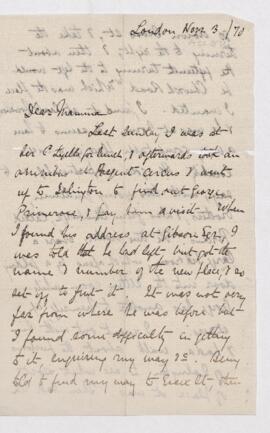 London Novr 3 /70
Dear Mamma
Last Sunday I was at
Sir C Lyell's for lunch, & afterwards took an
omnibus at Regent Circus & went
up to Islington to find out George
Primrose, & pay him a visit. When
I found his address at Gibson Sqr, I
was told that he had left but got the
name & number of the new place, & so
set off to find it. It was not very
far from where he was before but
I found some difficulty in getting
to it, enquiring my way &c. Being
told to find my way to St then